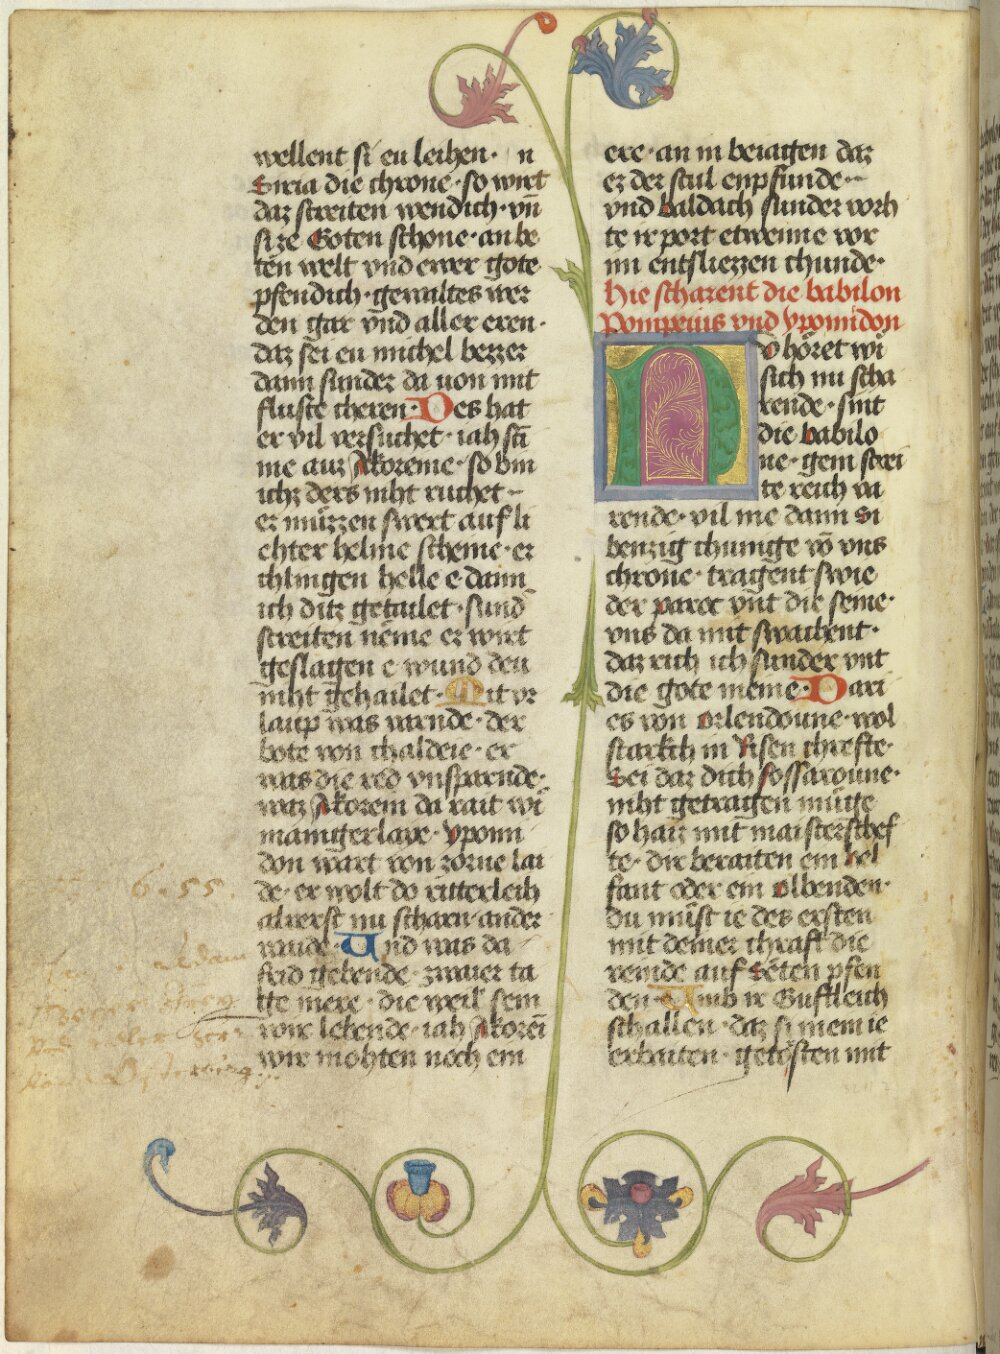 wellent si eu leihen · n
Siria die chrone · so wirt
daz streiten wendich · vn̄
size Goten schone · an be
ten welt vnd ewer gote
pfendich · gewaltes wer
den gar vnd aller eren ·
daz sei eu michel bezzer
dann sunder da uon mit
fluste cheren · Des hat
er vil versuchet · iah
me auz Akoreine · so bin
ichz ders niht ruchet –
ez müzzen swert auf li
chter helme scheine · er
chlingen helle e · dann
ich ditz getailet · sund
streiten neme ez wirt
geslagen e wund deu
niht gehailet · Mit vr
laup was varnde · der
bote von chaldeie · er
was die red vnsparnde ·
waz Akorein da rait wī
maniger laye · yponi
don wart von zorne lai
de · er wolt do ritterleih
alrerst nu scharn · ander
waide · Und was da
seid gebende · zwaier ta
ge mere · die weil sein
wir lebende · iah Akoreī
wir mohten noch ein
ere · an in beiagen daz
ez der stul enpfunde –
vnd baldach sunder vorh
te ir port etwenne vor
im entsliezzen chunde ·
Hie scharent die babilon
Pompeius vnd yponidon
No höret wi
sich nu scha
rende · sint
die babilo
ne · gein strei
te reich va
rende · vil me dann si
benzig chunige vō vns
chrone · tragent swie
der paruc vnt die seine ·
vns da mit swachent ·
daz rich ich sunder vnt
die gote meine · Dari
es von orlendoune · wol
starkch in Risen chrefte ·
Sei daz dich fossaroune ·
niht getragen müge
so haiz mit maisterschef
te · dir beraiten ein hel
fant oder ein olbenden ·
du müst ie des ersten
mit deiner chraft die
veinde auf Seten pfen
den · Umb ir Guftleich
schallen · daz si mein ie
erbaiten · getösten mit
6 · 55 ·